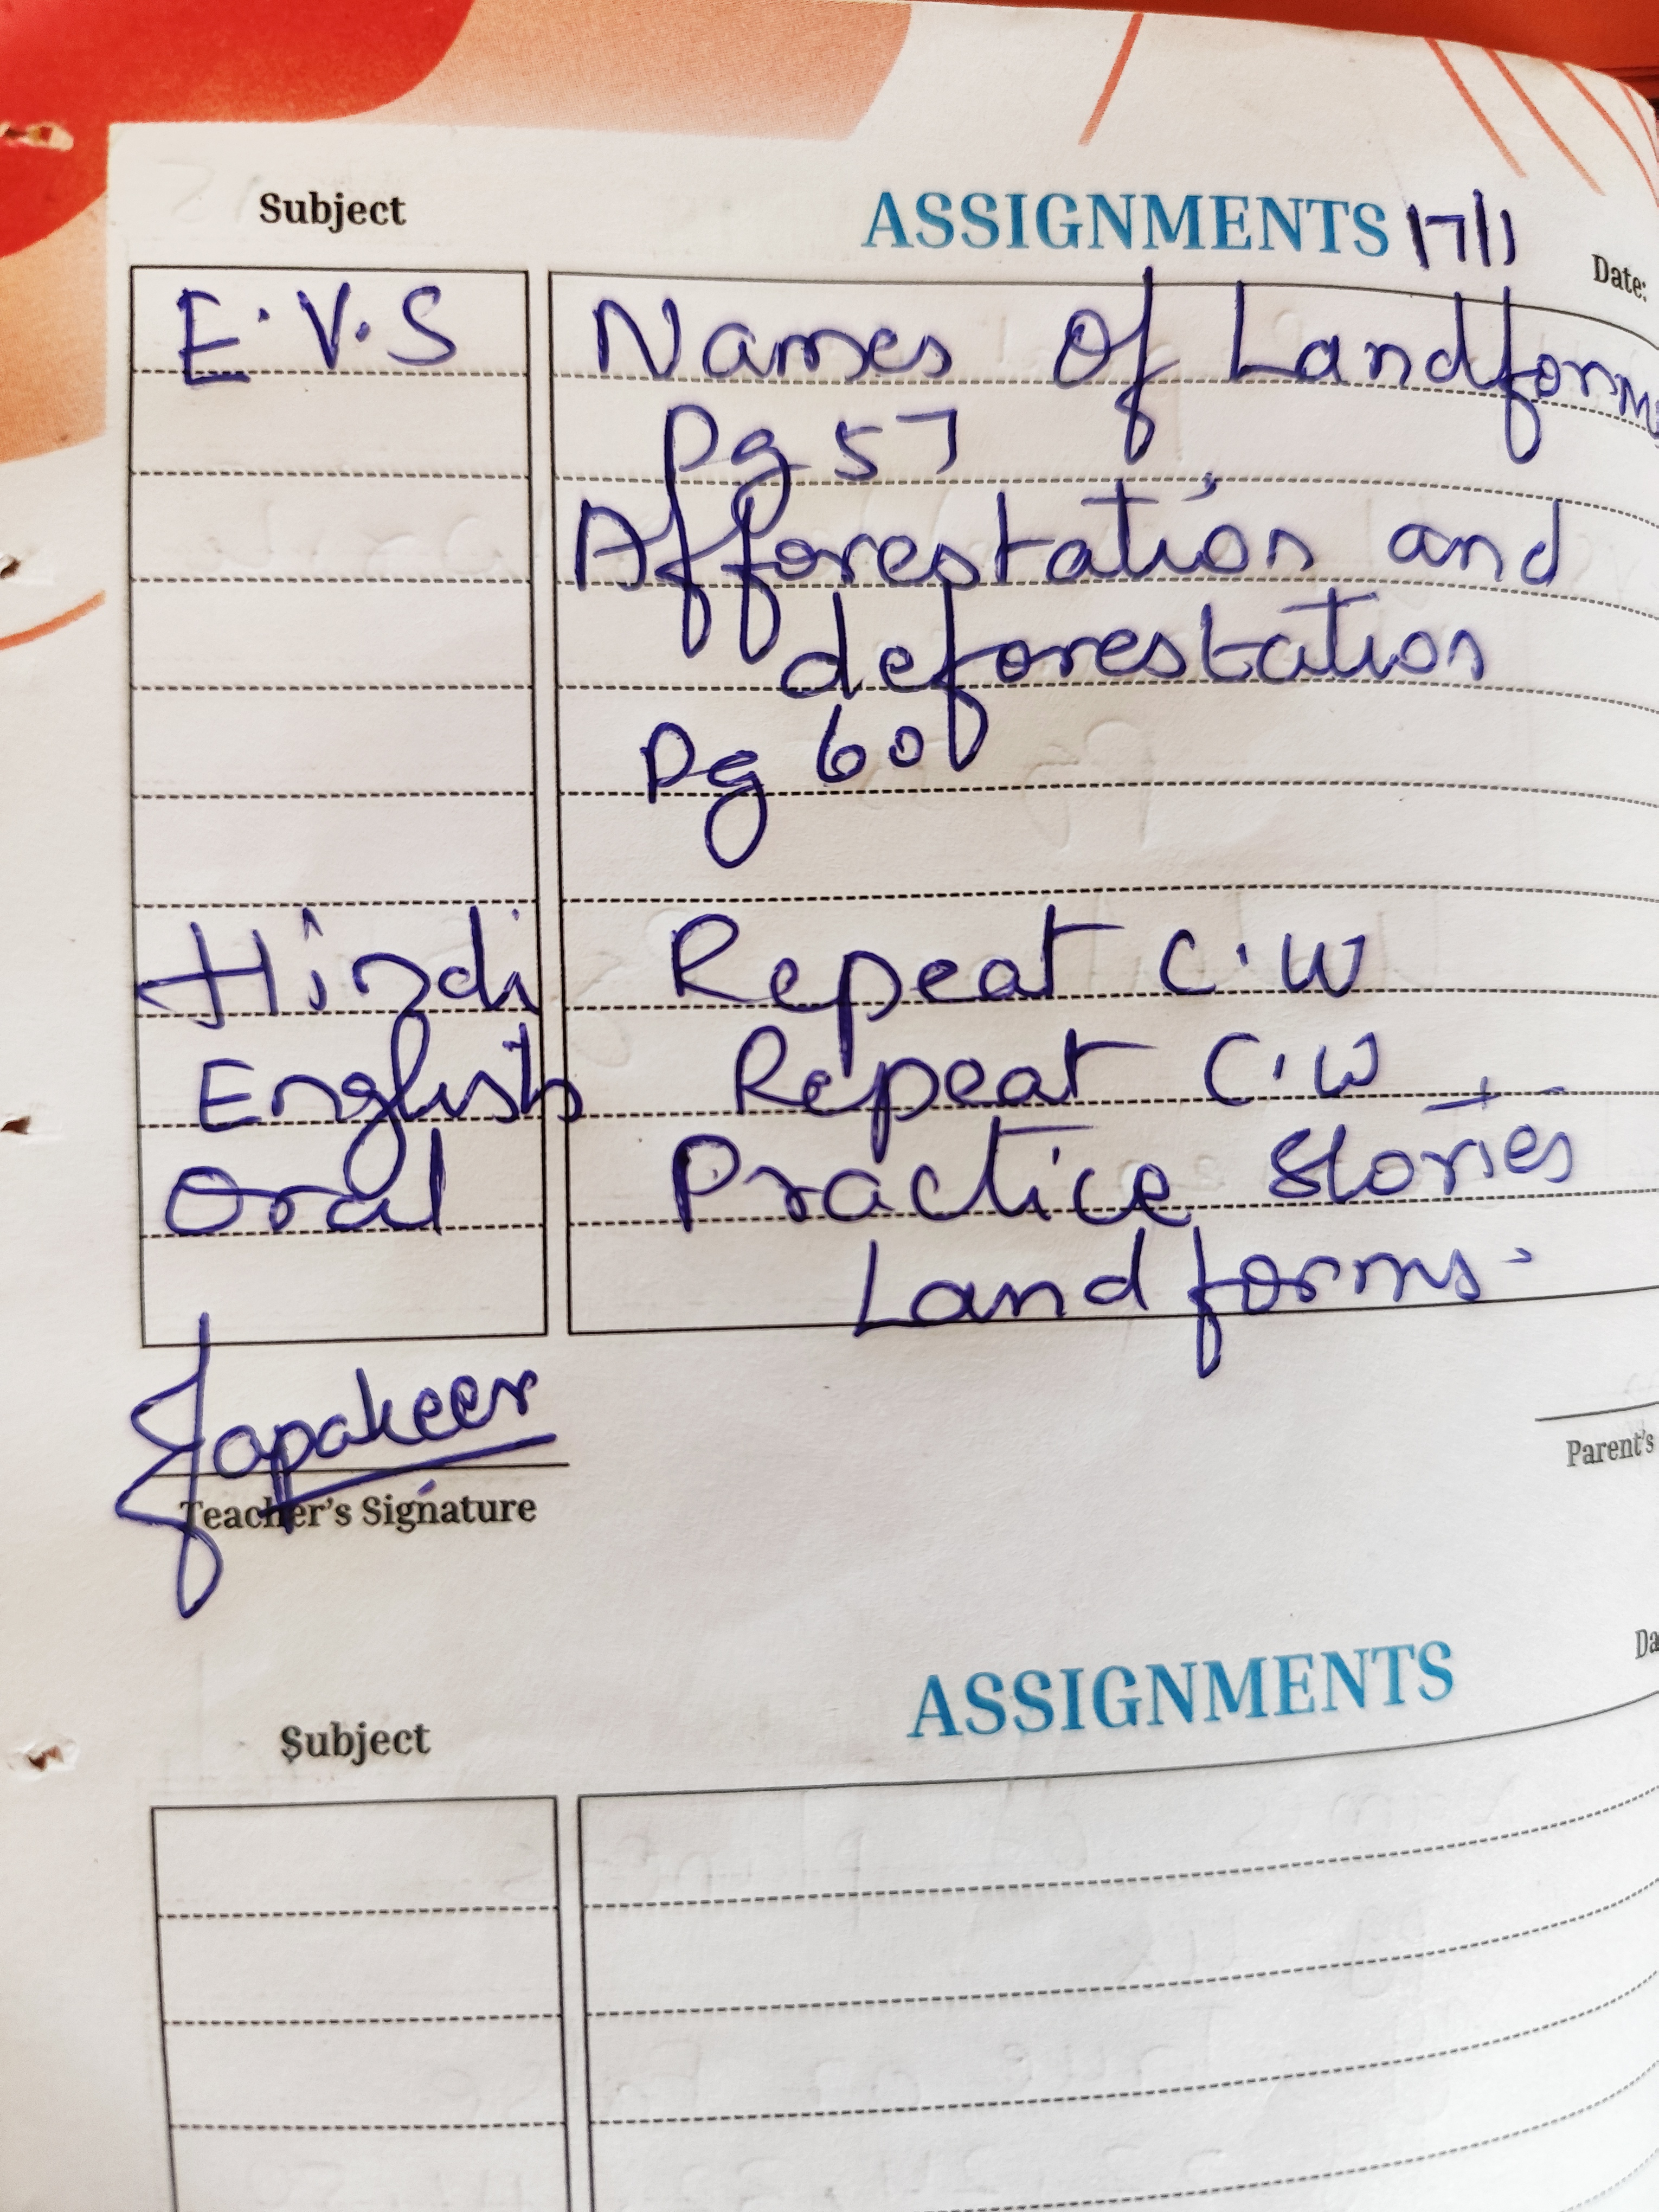 Subject ASSIGNMENTS 17/1 Date:
E.V.S Names Of Landforms
Pg 57
Afforestation and
deforestation
Pg 60
Hindi Repeat C.W
English Repeat C.W
Oral Practice Stories
Landforms.
Teacher's Signature Parent's
Subject ASSIGNMENTS